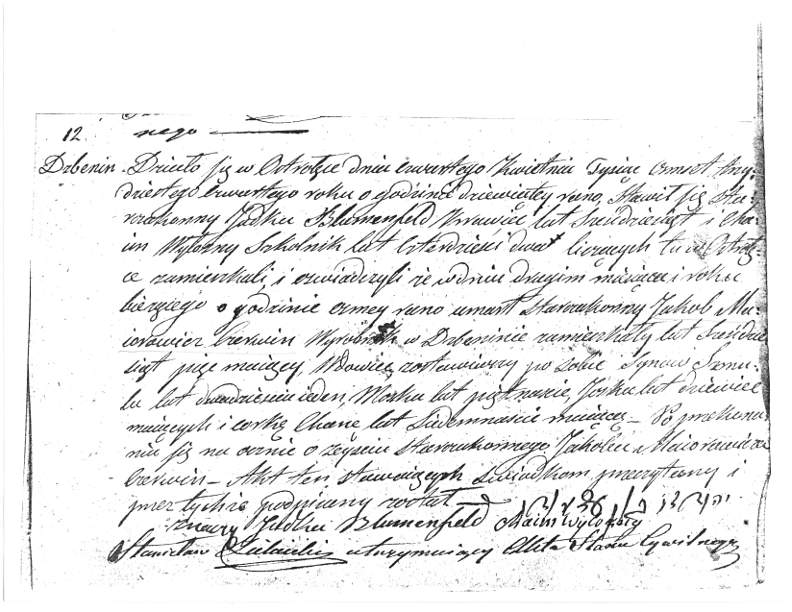 12
nego
Drbenin. Działo się w Ostrołęce dnia czwartego Kwietnia Tysiąc osmset trzy-
dziestego czwartego roku o godzinie dziewiątey rano, Stawił się Sta-
rozakonny Jodku Blumenfeld Krawiec lat Sześdziesiąt i Cha-
im Wylozny Szkolnik lat Czterdzieści dwa liczących tu w Ostrołę-
ce zamieszkali, i oswiadczyli że w dniu drugim miesiąca i roku
bieżącego o godzinie osmey rano umarł Starozakonny Jakob Ma-
iorowicz Czerwin Wyrobnik w Drbeninie zamieszkały lat Sześdzie-
siąt pięć maiący, Wdowiec zostawiwszy po sobie Synów Szmu-
la lat dwadzieścia ieden, Moska lat piętnaście, Joska lat dziewięć
maiących i córkę Chanę lat Siedemnaście maiącą — Po przekona-
niu się na ocznie o zeyściu Starozakonnego Jakoba Maiorowicza
Czerwin — Akt ten stawaiącym Swiadkom przeczytany i
przez tychże podpisany został —
znaczy Jodku Blumenfeld Chaim Wylozny
Stanisław utrzymuiący Akta Stanu Cywilnego